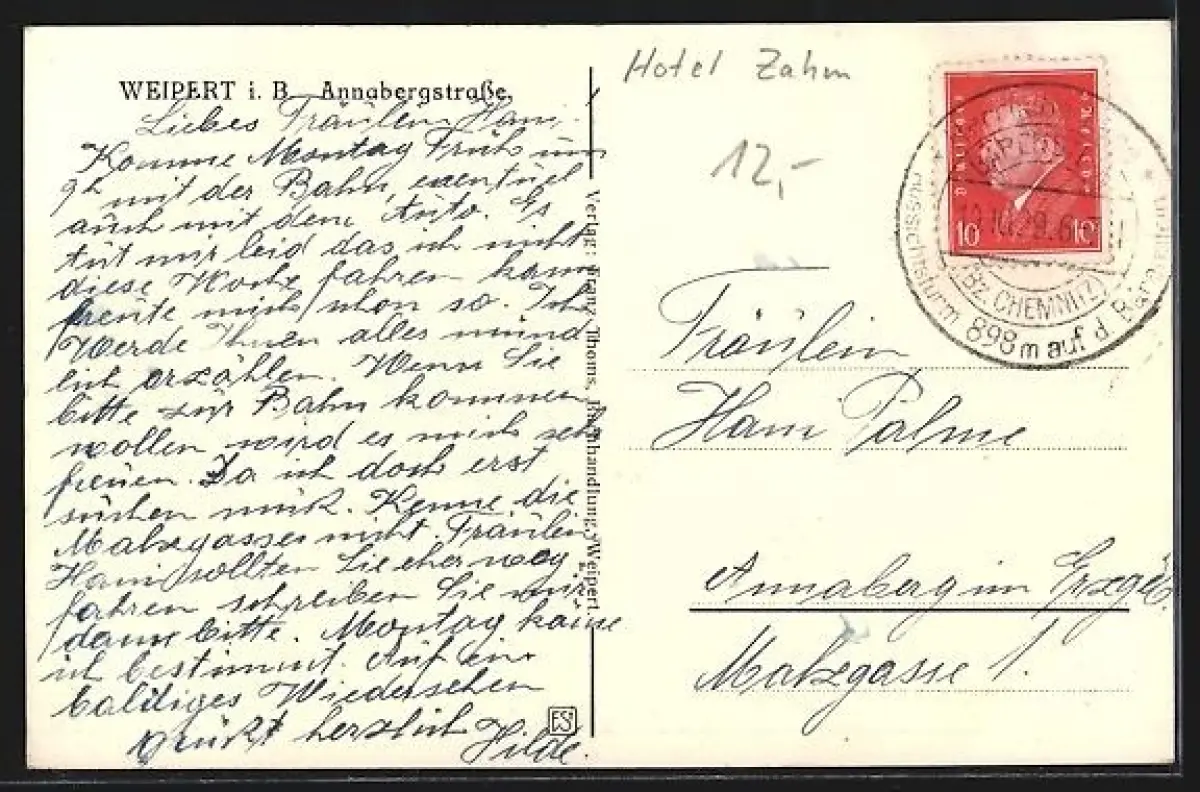 WEIPERT i. B. Annabergstraße.
Liebes Fräulein Hani.
Komme Montag Früh um
9h mit der Bahn, eventuel
auch mit dem Auto. Es
tut mir leid das ich nicht
diese Woche fahren kann
freute mich schon so. Ich
Werde Ihnen alles münd
lich erzählen. Wenn Sie
bitte zur Bahn kommen
wollen wird es mich sehr
freuen. Da ich doch erst
suchen muß. Kenne die
Malzgasse nicht. Fräulein
Hani sollten Sie eher weg
fahren schreiben Sie mir
dann bitte. Montag käme
ich bestimmt. Auf ein
baldiges Wiedersehen
grüßt herzlich Hilde.
Verlag: Franz Thoms, Buchhandlung, Weipert
ES
Hotel Zahm
12,-
10 10
(Bz. CHEMNITZ)
Aussichtsturm 898 m auf d.
Fräulein
Hani Palme
Annaberg im Erzgeb.
Malzgasse 1.